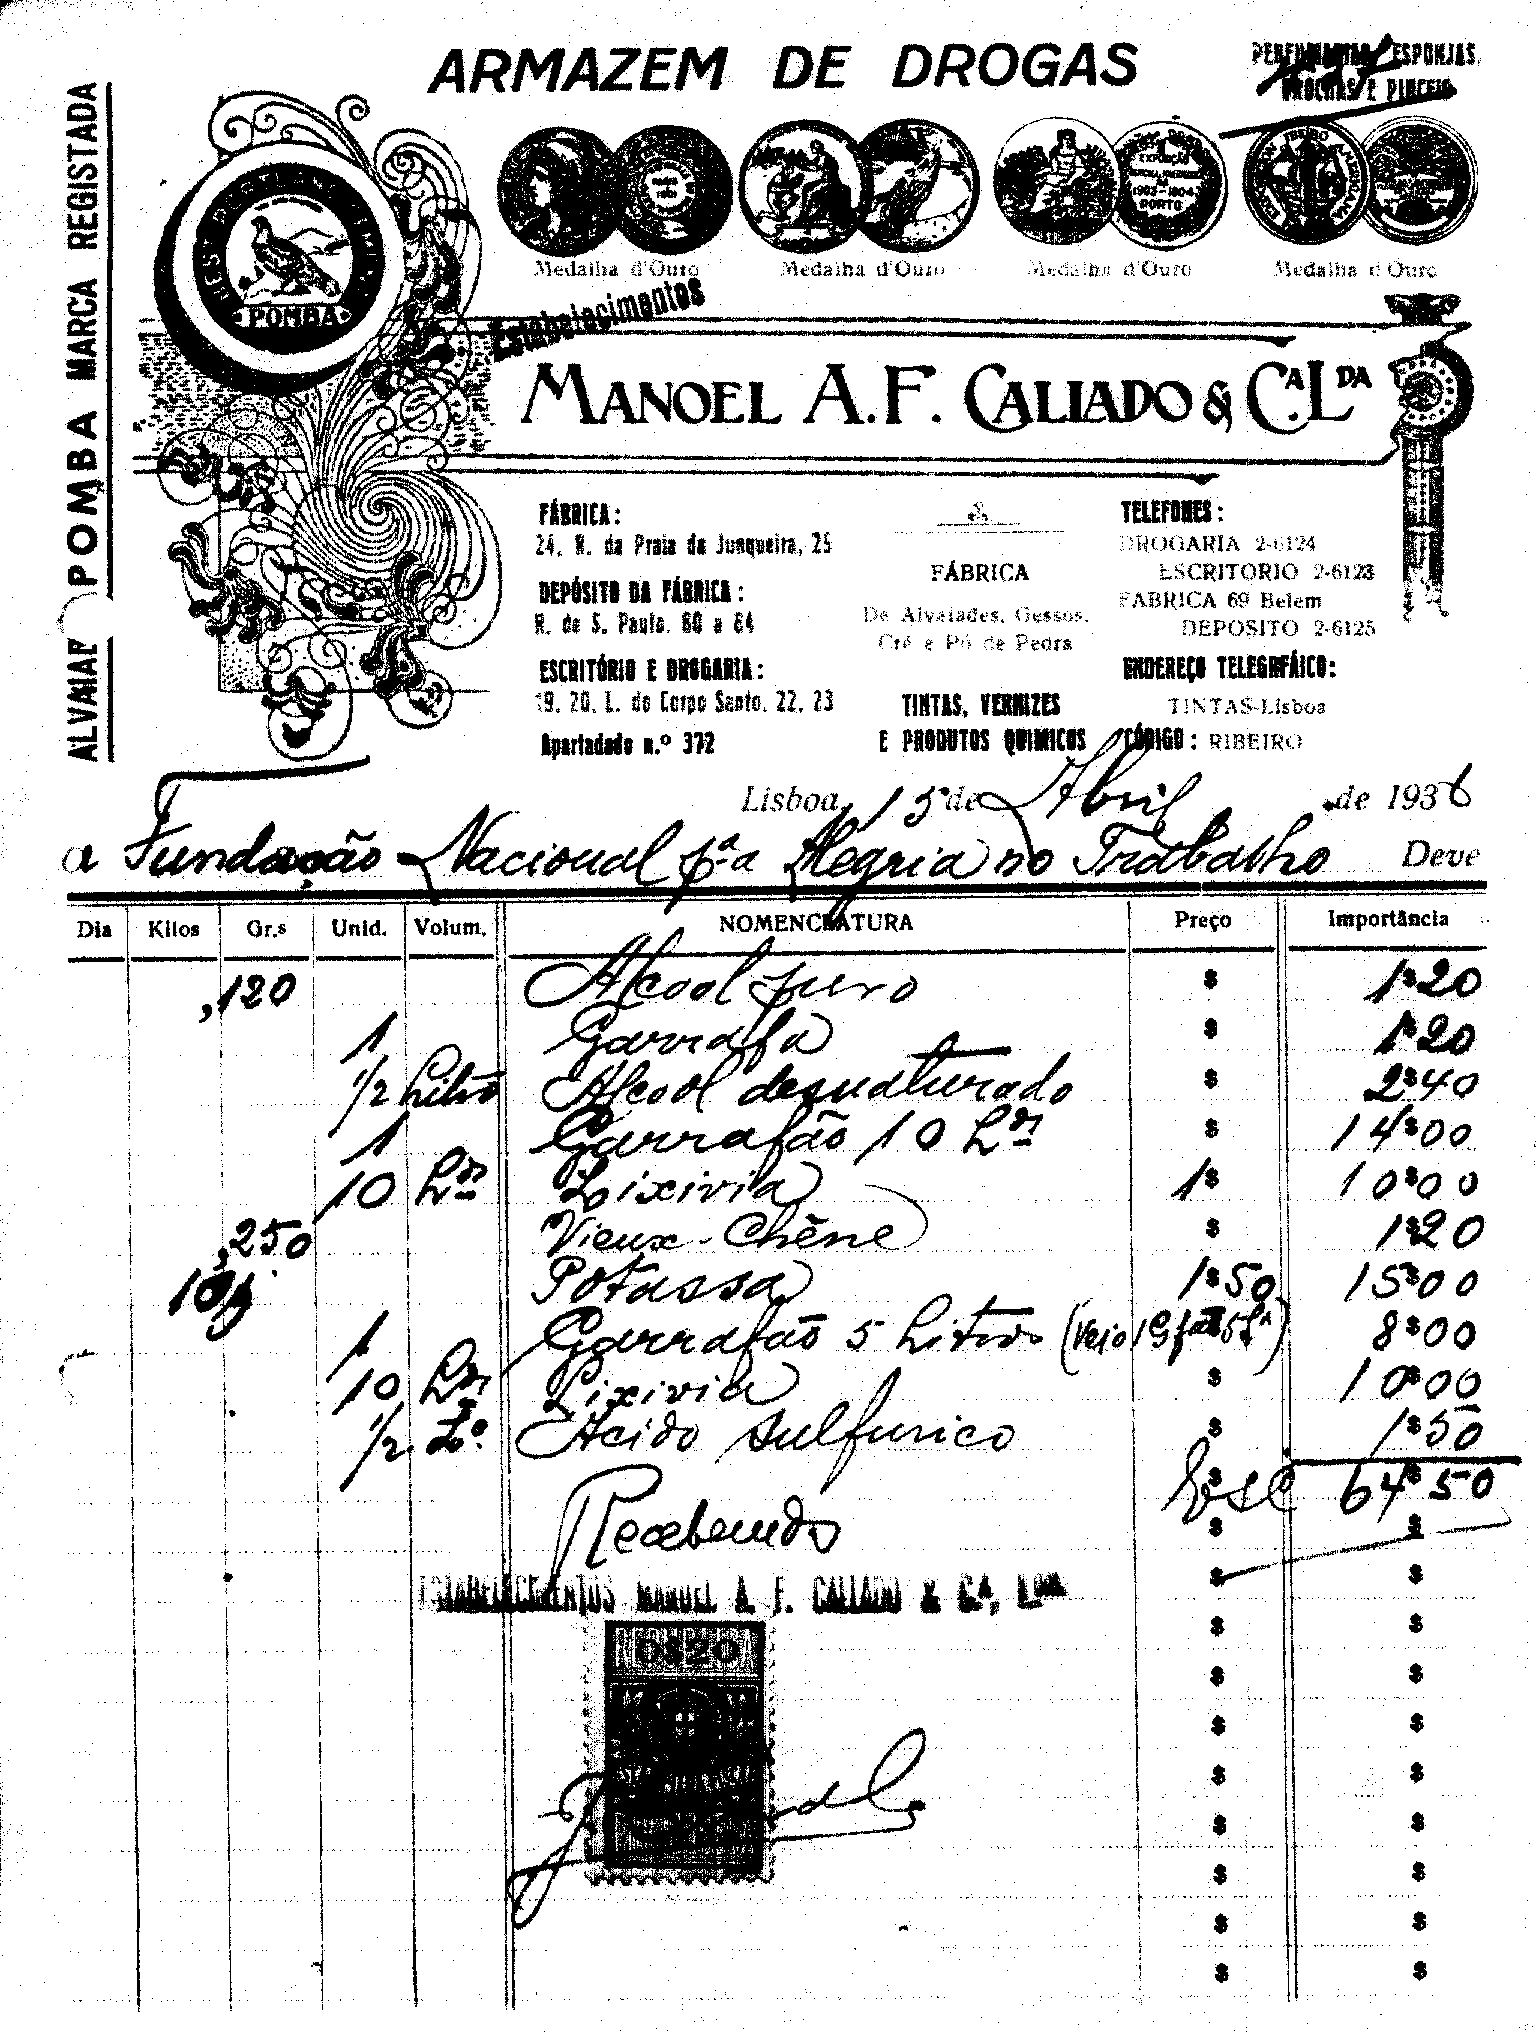 ARMAZEM DE DROGAS
PERFUMARIAS ESPONJAS
BROCHAS E PINCEIS
ALVAIADE POMBA MARCA REGISTADA
POMBA
EXPOSIÇÃO
1903-1904
PORTO
Medalha d'Ouro Medalha d'Ouro Medalha d'Ouro Medalha d'Ouro
Estabelecimentos
MANOEL A. F. CALLADO & CA. LDA
FÁBRICA:
24, R. da Praia da Junqueira, 25
DEPÓSITO DA FÁBRICA:
R. de S. Paulo, 60 a 64
ESCRITÓRIO E DROGARIA:
19, 20, L. do Corpo Santo, 22, 23
Apartadado n.º 372
FÁBRICA
De Alvaiades, Gessos,
Cré e Pó de Pedra
TINTAS, VERNIZES
E PRODUTOS QUIMICOS
TELEFONES:
DROGARIA 2-6124
ESCRITORIO 2-6123
FABRICA 69 Belem
DEPOSITO 2-6125
ENDEREÇO TELEGRFÁICO:
TINTAS-Lisboa
CÓDIGO: RIBEIRO
Lisboa, 15 de Abril de 1936
a Fundação Nacional pª a Alegria no Trabalho Deve
Dia Kilos Gr.s Unid. Volum. NOMENCLATURA Preço Importância
,120 Alcool puro $ 1$20
1 Garrafa $ 1$20
1/2 Litro Alcool desnaturado $ 2$40
1 Garrafão 10 Lrs $ 14$00
10 Lrs Lixivia 1$ 10$00
,250 Vieux-Chêne $ 1$20
10 Potassa 1$50 15$00
1 Garrafão 5 Litros (veio 1 Gfão 5 Ls) 8$00
10 Lrs Lixivia $ 10$00
1/2 Lo. Acido sulfurico $ 1$50
Esc 64$50
Recebemos
ESTABELECIMENTOS MANOEL A. F. CALLADO & C.A, LDA
0$20